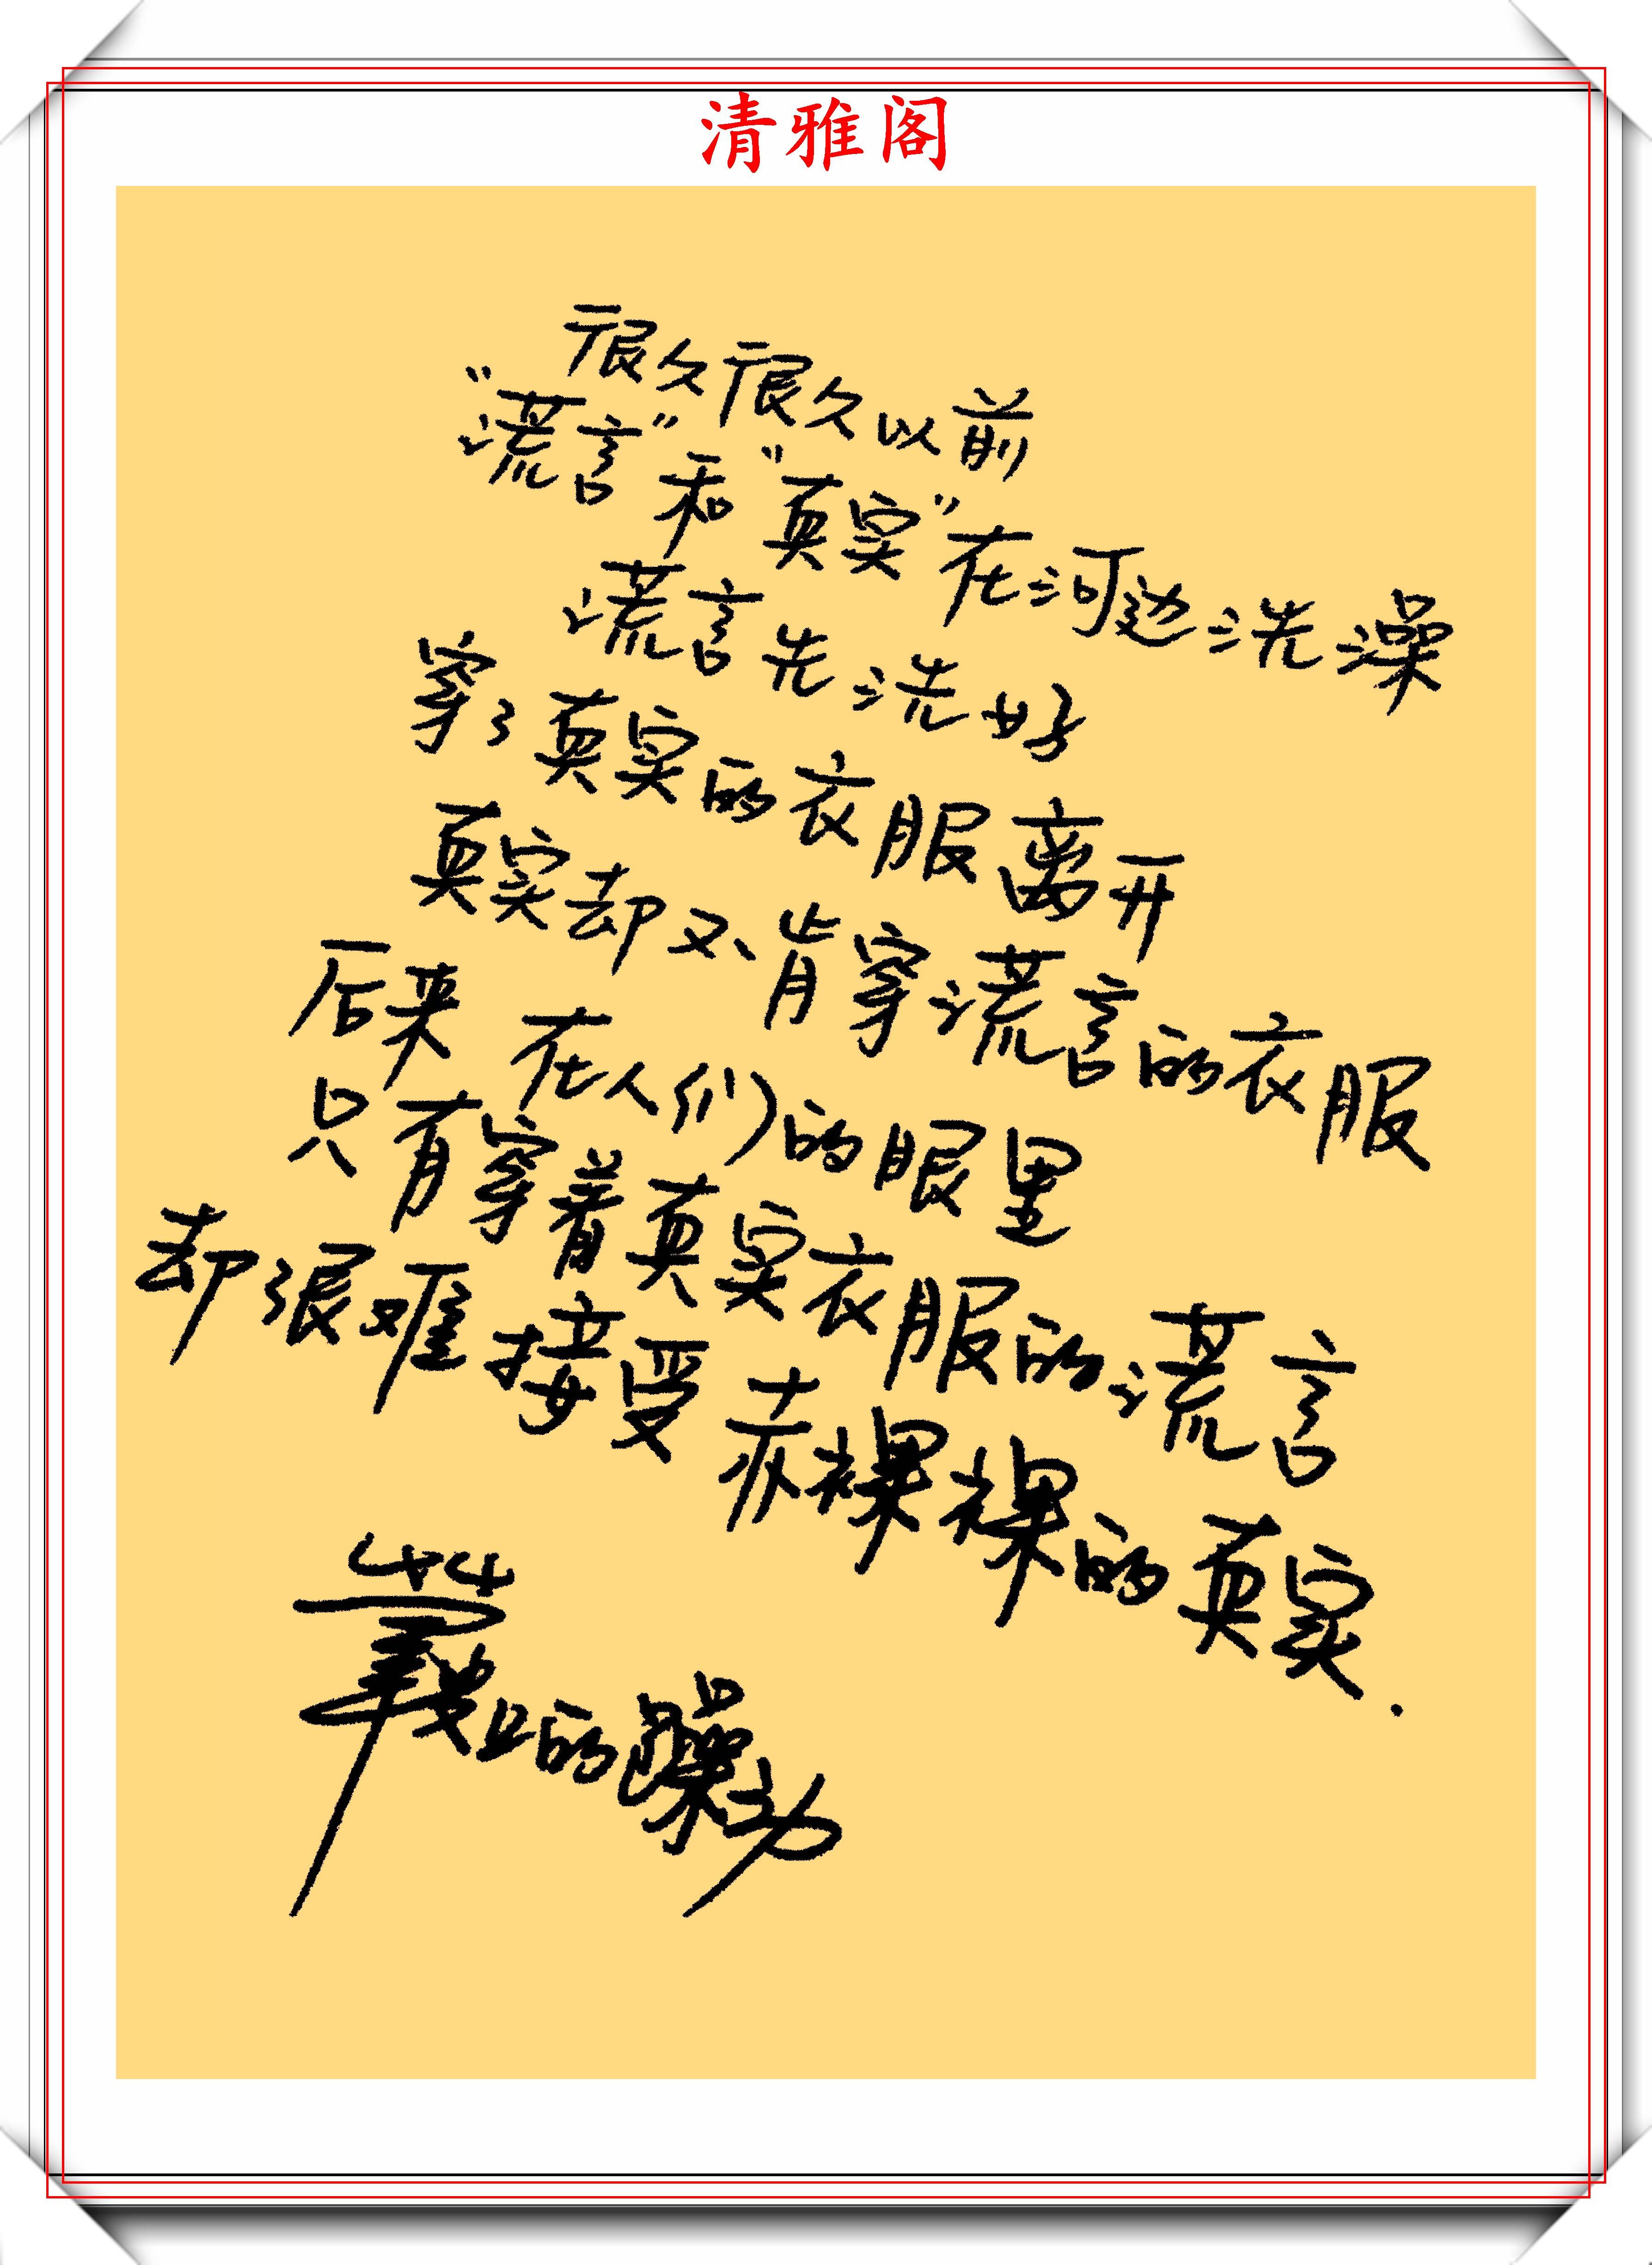 清雅阁
很久很久以前
“谎言”和“真实”在河边洗澡
谎言先洗好
穿了真实的衣服离开
真实却不肯穿谎言的衣服
后来 在人们的眼里
只有穿着真实衣服的谎言
却很难接受赤裸裸的真实.
的躁动